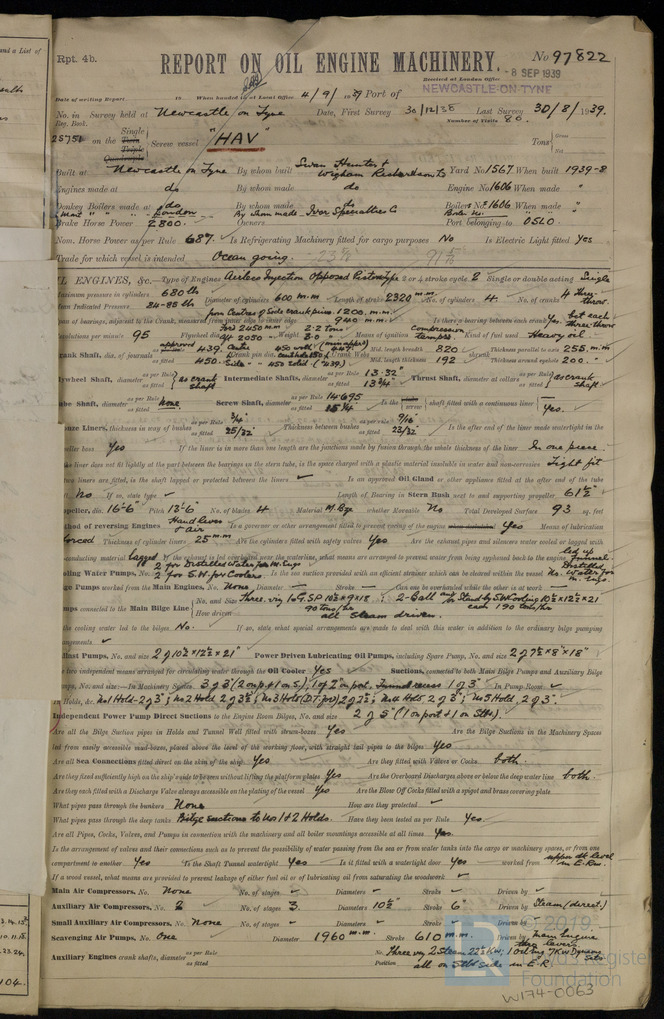 Rpt. 4b.
REPORT ON OIL ENGINE MACHINERY.
No 97822
Received at London Office
- 8 SEP 1939
NEWCASTLE-ON-TYNE
Date of writing Report 19 When handed in at Local Office 4/9/ 39 Port of
No. in Survey held at Newcastle on Tyne Date, First Survey 30/12/38 Last Survey 30/8/1939.
Reg. Book. Number of Visits 80.
on the Single Triple Quadruple Screw vessel "HAV" Tons Gross Net
Built at Newcastle on Tyne By whom built Swan Hunter & Wigham Richardson Yard No 1567 When built 1939-8
Engines made at do By whom made do Engine No 1606 When made "
Donkey Boilers made at do By whom made do Boiler No 1606 When made "
London By whom made Boiler No.
Brake Horse Power 2800. Owners Port belonging to OSLO
Nom. Horse Power as per Rule 687. Is Refrigerating Machinery fitted for cargo purposes No Is Electric Light fitted Yes
Trade for which vessel is intended Ocean going.
IL ENGINES, &c. Type of Engines Airless Injection Opposed Piston type 2 or 4 stroke cycle 2 Single or double acting Single
aximum pressure in cylinders 680 lbs Diameter of cylinders 600 m.m Length of stroke 2320 m.m. No. of cylinders 4. No. of cranks 4 three throw.
ean Indicated Pressure 84-85 lb from Centres of Side crank pins 1200. m.m.
pan of bearings, adjacent to the Crank, measured from inner edge to inner edge 940 m.m. Is there a bearing between each crank Yes. but each three throw
evolutions per minute 95 Flywheel dia. Ford 2450 m.m Aft 2050 " Weight 2.2 Tons 3.0 " Means of ignition Compression temprs. Kind of fuel used Heavy oil.
rank Shaft, dia. of journals approved 439. as fitted 450. Crank pin dia. Crank Webs Mid. length breadth 820 Mid. length thickness 192 shrunk Thickness parallel to axis 255. m.m Thickness around eyehole 200. "
lywheel Shaft, diameter as per Rule as fitted as crank shaft Intermediate Shafts, diameter as per Rule 13.32" as fitted 13 3/4" Thrust Shaft, diameter at collars as per Rule as fitted as crank shaft
ube Shaft, diameter as per Rule as fitted none Screw Shaft, diameter as per Rule 14.695 as fitted 15 1/4 Is the shaft fitted with a continuous liner Yes.
onze Liners, thickness in way of bushes as per Rule 3/4" as fitted 25/32" Thickness between bushes as per rule 9/16 as fitted 23/32" Is the after end of the liner made watertight in the
peller boss Yes If the liner is in more than one length are the junctions made by fusion through the whole thickness of the liner In one piece.
he liner does not fit tightly at the part between the bearings in the stern tube, is the space charged with a plastic material insoluble in water and non-corrosive Tight fit
two liners are fitted, is the shaft lapped or protected between the liners Is an approved Oil Gland or other appliance fitted at the after end of the tube
ft. No If so, state type Length of Bearing in Stern Bush next to and supporting propeller 61 1/2"
opeller, dia. 16'-6" Pitch 13'-6" No. of blades 4 Material M. Bze whether Moveable No Total Developed Surface 93 sq. feet
ethod of reversing Engines Hand lever & air Is a governor or other arrangement fitted to prevent racing of the engine Yes Means of lubrication
forced Thickness of cylinder liners 25 m.m Are the cylinders fitted with safety valves Yes Are the exhaust pipes and silencers water cooled or lagged with
n-conducting material lagged If the exhaust is led overboard near the waterline, what means are arranged to prevent water from being syphoned back to the engine led up funnel.
ooling Water Pumps, No. 2 for Distilled Water for M. Engs 2 for S.W. for Coolers. Is the sea suction provided with an efficient strainer which can be cleared within the vessel
lge Pumps worked from the Main Engines, No. None Diameter Stroke Can one be overhauled while the other is at work
mps connected to the Main Bilge Line No. and Size Three. viz 1 @ G.S.P 10 1/2 x 9 x 18
How driven all Steam driven.
the cooling water led to the bilges No. If so, state what special arrangements are made to deal with this water in addition to the ordinary bilge pumping
allast Pumps, No. and size 2 @ 10 1/2" x 12 1/2" x 21" Power Driven Lubricating Oil Pumps, including Spare Pump, No. and size 2 @ 7 1/2" x 8" x 18"
e two independent means arranged for circulating water through the Oil Cooler Yes Suctions, connected to both Main Bilge Pumps and Auxiliary Bilge
mps, No. and size:—In Machinery Spaces 3 @ 3" (2 on p + 1 on S), 1 @ 2" on port. Tunnel recess 1 @ 3" In Pump Room
n Holds, &c. No 1 Hold - 2 @ 3"; No 2 Hold 2 @ 3 1/2"; No 3 Hold (D.T. for'd) 2 @ 3 1/2"; No 4 Hold 2 @ 3"; No 5 Hold, 2 @ 3".
Independent Power Pump Direct Suctions to the Engine Room Bilges, No. and size 2 @ 5" (1 on port & 1 on Stbd).
Are all the Bilge Suction pipes in Holds and Tunnel Well fitted with strum-boxes Yes Are the Bilge Suctions in the Machinery Spaces
led from easily accessible mud-boxes, placed above the level of the working floor, with straight tail pipes to the bilges Yes
Are all Sea Connections fitted direct on the skin of the ship Yes Are they fitted with Valves or Cocks both.
Are they fixed sufficiently high on the ship's side to be seen without lifting the platform plates Yes Are the Overboard Discharges above or below the deep water line both.
Are they each fitted with a Discharge Valve always accessible on the plating of the vessel Yes Are the Blow Off Cocks fitted with a spigot and brass covering plate
What pipes pass through the bunkers None How are they protected
What pipes pass through the deep tanks Bilge suctions to No 1 + 2 Holds. Have they been tested as per Rule Yes
Are all Pipes, Cocks, Valves, and Pumps in connection with the machinery and all boiler mountings accessible at all times Yes.
Is the arrangement of valves and their connections such as to prevent the possibility of water passing from the sea or from water tanks into the cargo or machinery spaces, or from one
compartment to another Yes Is the Shaft Tunnel watertight Yes Is it fitted with a watertight door Yes worked from upper dk level in E. Rm.
If a wood vessel, what means are provided to prevent leakage of either fuel oil or lubricating oil from saturating the woodwork
Main Air Compressors, No. None No. of stages Diameters Stroke Driven by
Auxiliary Air Compressors, No. 2 No. of stages 3. Diameters 10 1/2" Stroke 6" Driven by Steam (direct.)
Small Auxiliary Air Compressors, No. None No. of stages Diameters Stroke Driven by
Scavenging Air Pumps, No. One Diameter 1960 m.m. Stroke 610 m.m. Driven by Main Engine thro levers
Auxiliary Engines crank shafts, diameter as per Rule as fitted No. Three viz 2 Steam 22 1/2 Kw; 1 oil eng 7 Kw Dynamo Sets
Position all on Stbd side in E.R.
© 2019
Lloyd's Register
Foundation
W174-0063